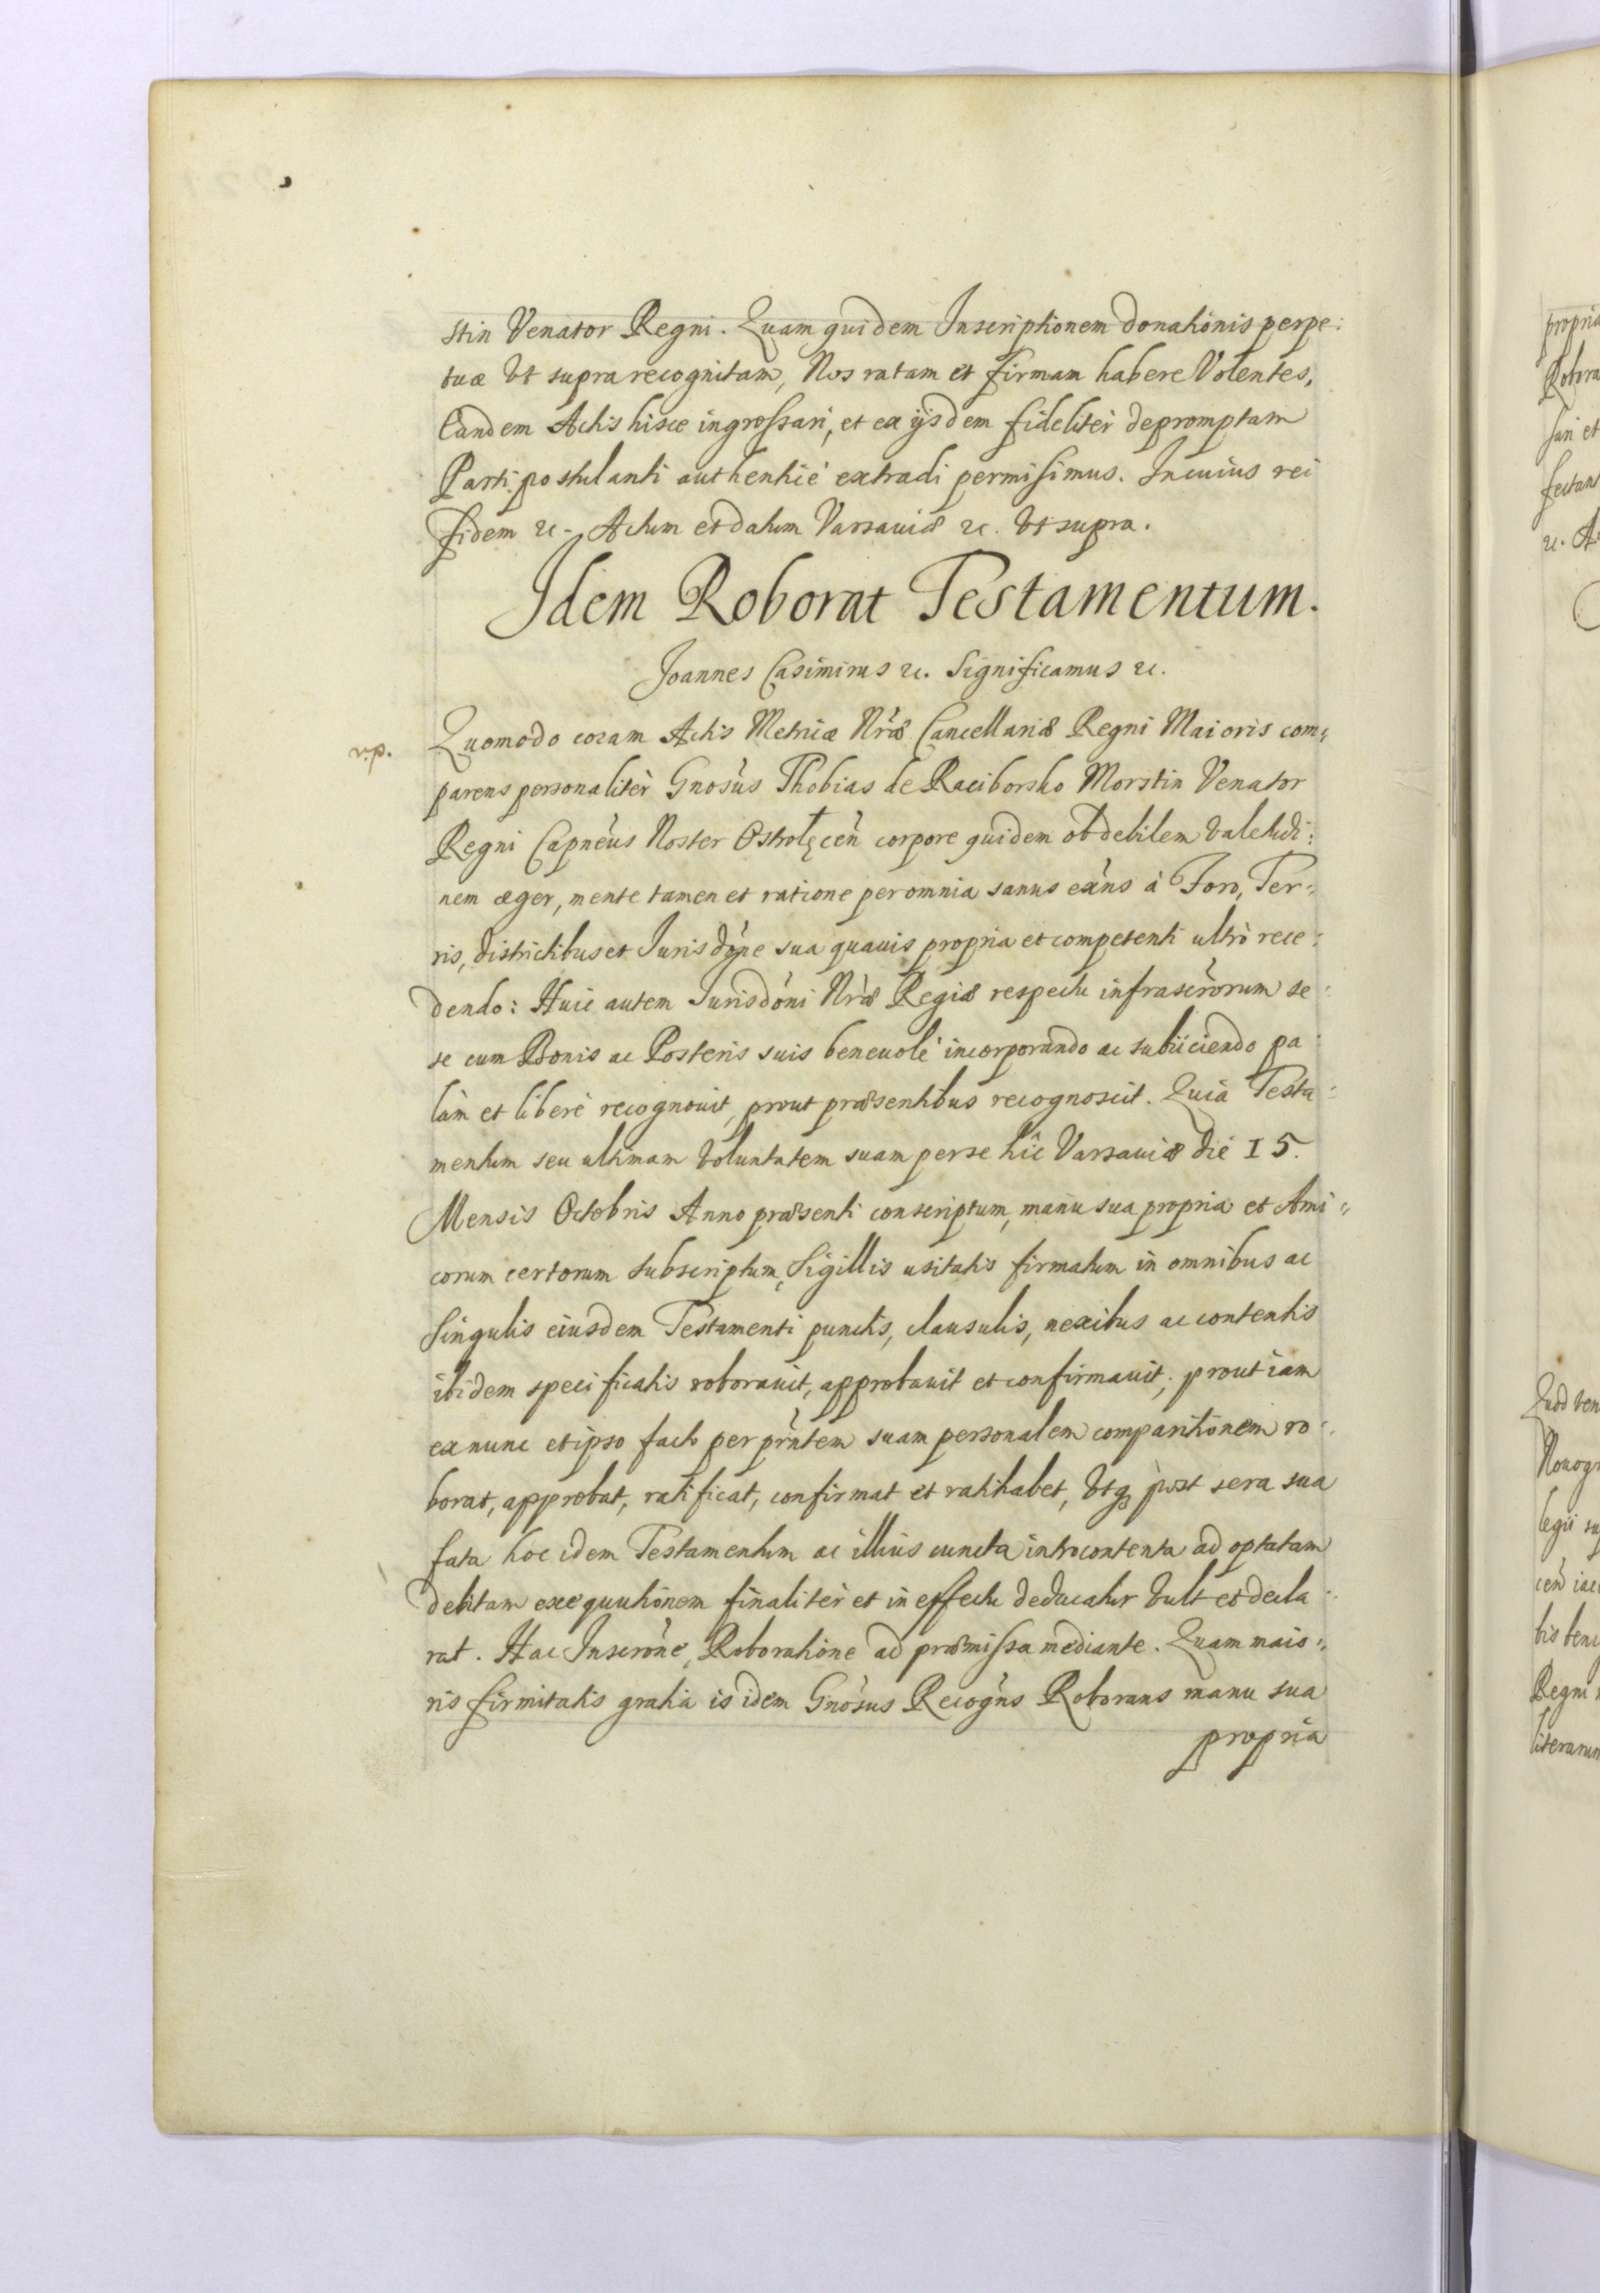 stin Venator Regni. Quam quidem Inscriptionem donationis perpe:
tuæ Vt supra recognitam, Nos ratam et firmam habere Volentes,
Eandem Actis hisce ingrossari, et ex ijsdem fideliter depromptam
Parti postulanti authenticè extradi permisimus. In cuius rei
fidem &c. Actum et datum Varsaviæ &c. Vt supra.
Idem Roborat Testamentum.
Joannes Casimirus &c. Significamus &c.
v.p. Quomodo coram Actis Metricæ Nr̃æ Cancellariæ Regni Maioris com„
parens personalitèr Gnosùs Thobias de Raciborsko Morstin Venator
Regni Capnẽus Noster Ostrołęcen̄ corpore quidem ob debilem Valetudi:
nem æger, mente tamen et ratione per omnia sanus exñs à Foro, Ter„
ris, districtibus et Jurisdõne sua quauis propria et competenti ultrò rece:
dendo: Huic autem Jurisdõni Nr̃æ Regiæ respectu infrascr̃orum se:
se cum Bonis ac Posteris suis beneuolè incorporando ac subiiciendo pa:
làm et liberè recognouit, prout præsentibus recognoscit. Quia Testa:
mentum seu ultimam Voluntatem suam per se hîc Varsauiæ die 15.
Mensis Octobris Anno præsenti conscriptum, manu sua propria et Ami„
corum certorum subscriptum, Sigillis usitatis firmatum in omnibus ac
Singulis eiusdem Testamenti punctis, clausulis, nexibus ac contentis
ibidem specificatis roborauit, approbauit et confirmauit; prout iam
ex nunc et ipso facto per pr̃ntem suam personalem comparitionem ro:
borat, approbat, ratificat, confirmat et ratihabet, Vtq3 post sera sua
fata hoc idem Testamentum ac illius cuncta introcontenta ad optatam
debitam exequutionem finalitèr et in effectu deducatur Vult et decla:
rat. Hac Inscr̃one, Roboratione ad præmissa mediante. Quam maio„
ris firmitatis gratia is idem Gnõsus Recogñs Roborans manu sua
propria